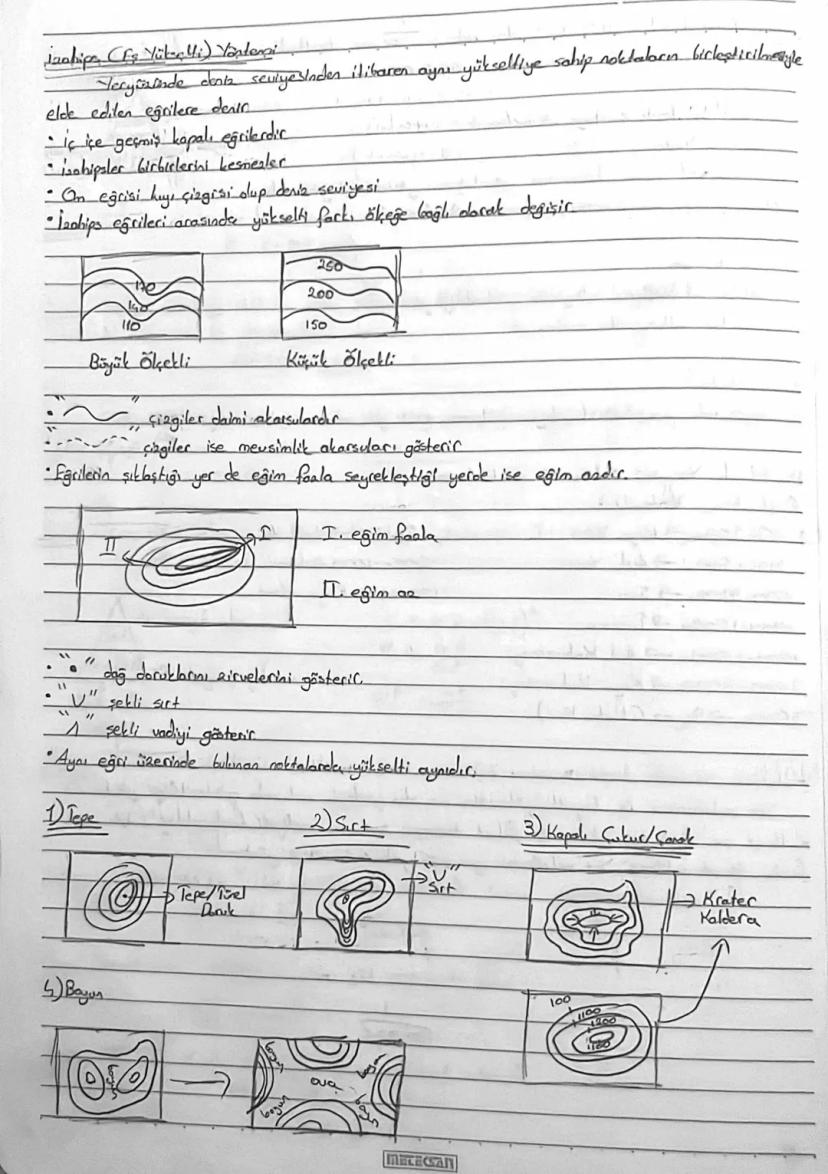 İzohips (Eş Yükselti) Yöntemi
Yeryüzünde deniz seviyesinden itibaren aynı yükseltiye sahip noktaların birleştirilmesiyle
elde edilen eğrilere denir
• İç içe geçmiş kapalı eğrilerdir
• İzohipsler birbirlerini kesmezler
• On eğrisi kıyı çizgisi olup deniz seviyesi
• İzohips eğrileri arasında yükselti farkı ölçeğe bağlı olarak değişir.
170
140
110
250
200
150
Büyük Ölçekli
Küçük Ölçekli
• " " çizgiler daimi akarsulardır
• " " çizgiler ise mevsimlik akarsuları gösterir
• Eğrilerin sıklaştığı yer de eğim fazla seyrekleştiği yerde ise eğim azdır.
II
I
I. eğim fazla
II. eğim az
• "•" dağ doruklarını zirvelerini gösterir.
• "V" şekli sırt
"Λ" şekli vadiyi gösterir
• Aynı eğri üzerinde bulunan noktalarda, yükselti aynıdır.
1) Tepe
2) Sırt
3) Kapalı Çukur/Çanak
Tepe/
Doruk
"U"
Sırt
Krater
Kaldera
4) Boyun
100
1100
1200
1100
boyun
boyun
ova
boyun
boyun
boyun
METEKSAN